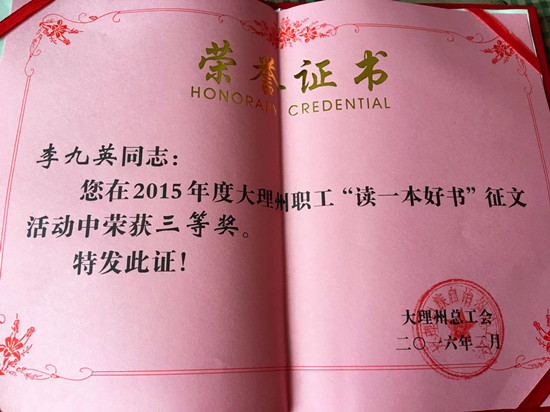 荣誉证书
HONORARY CREDENTIAL
李九英同志：
您在2015年度大理州职工“读一本好书”征文
活动中荣获三等奖。
特发此证！
大理州总工会
二〇一六年二月